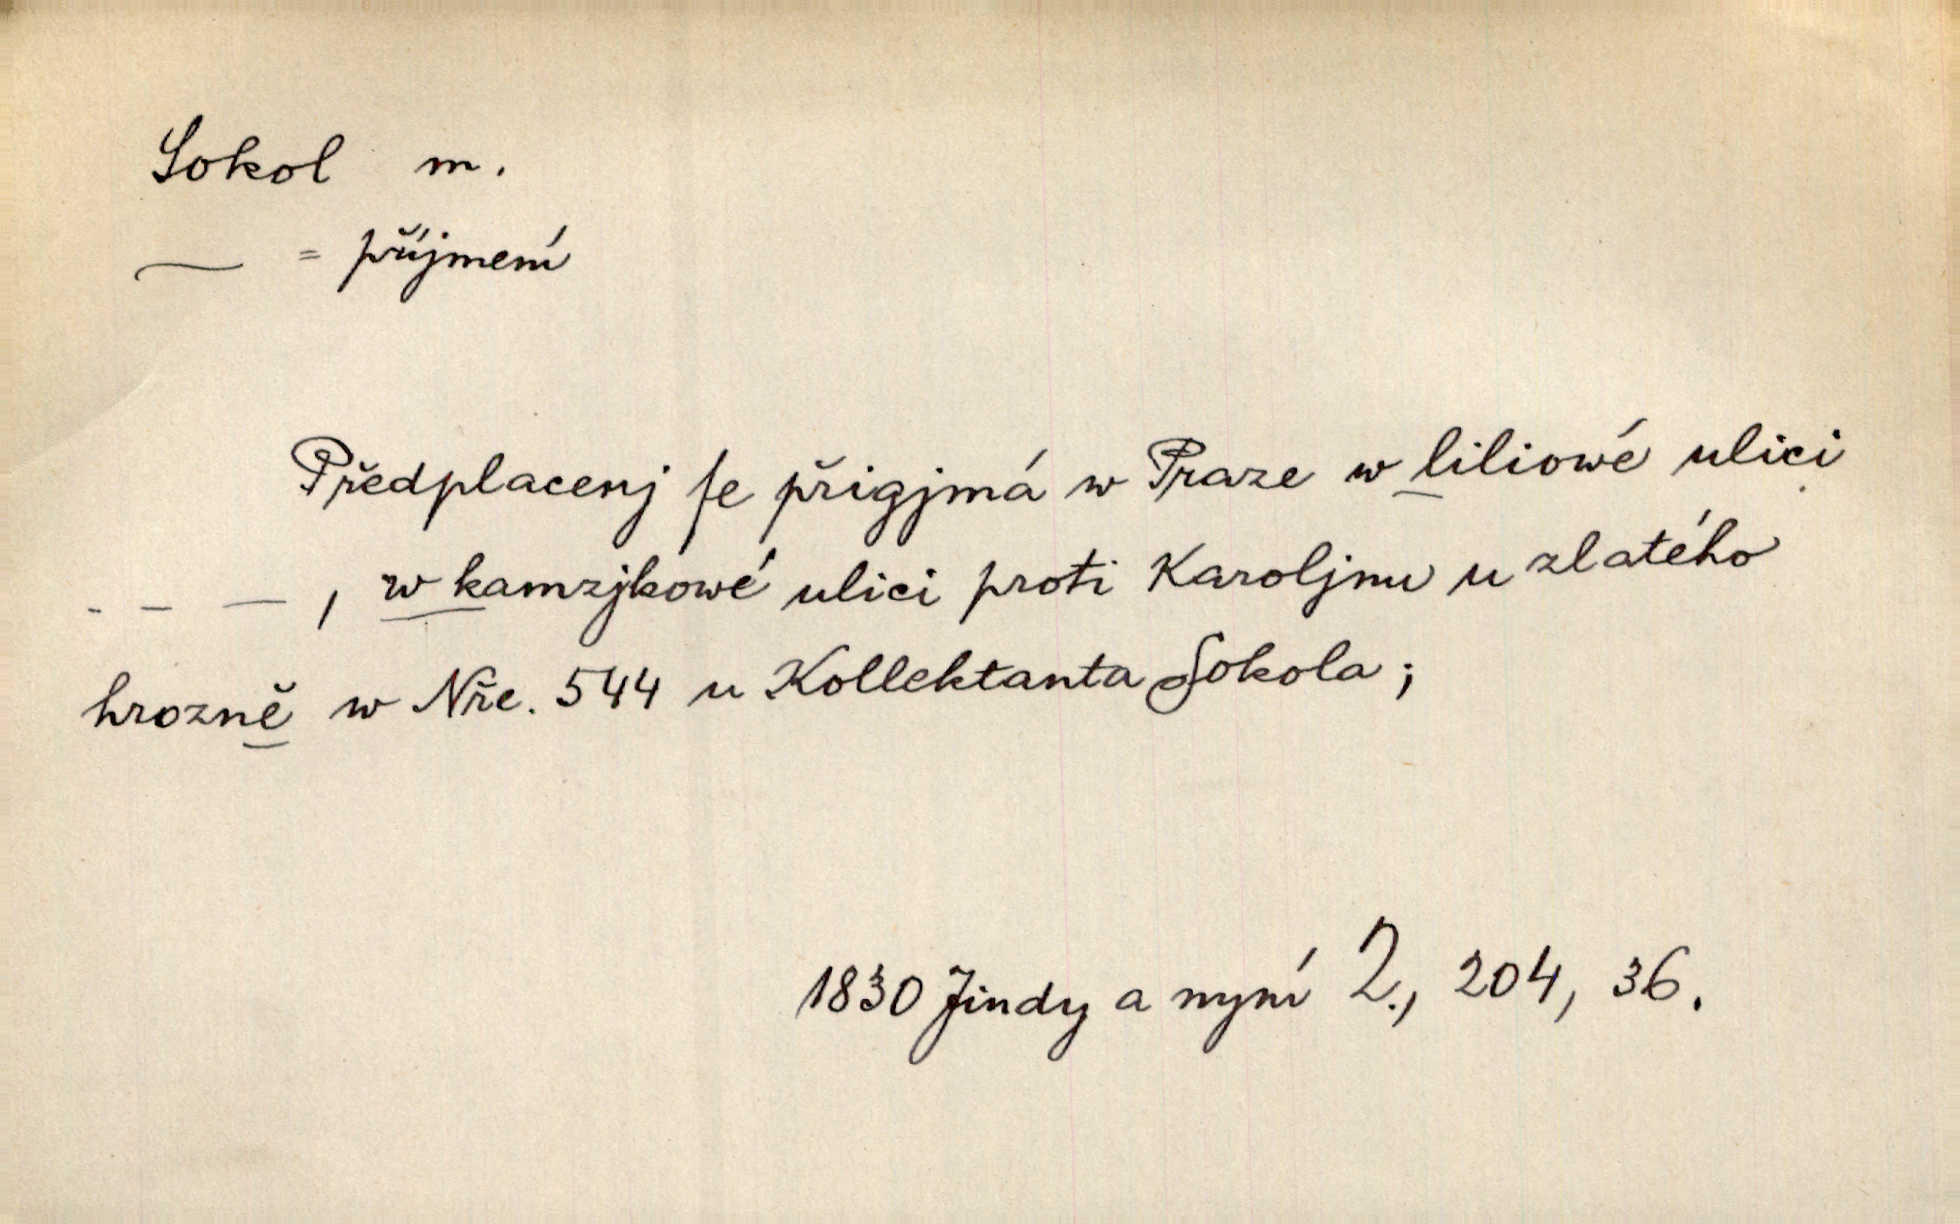 Sokol m.
— = příjmení
Předplacenj ſe přigjmá w Praze w liliowé ulici
- - -, w kamzjkowé ulici proti Karoljnu u zlatého
hrozně w Nře. 544 u Kollektanta Sokola;
1830 Jindy a nyní 2., 204, 36.